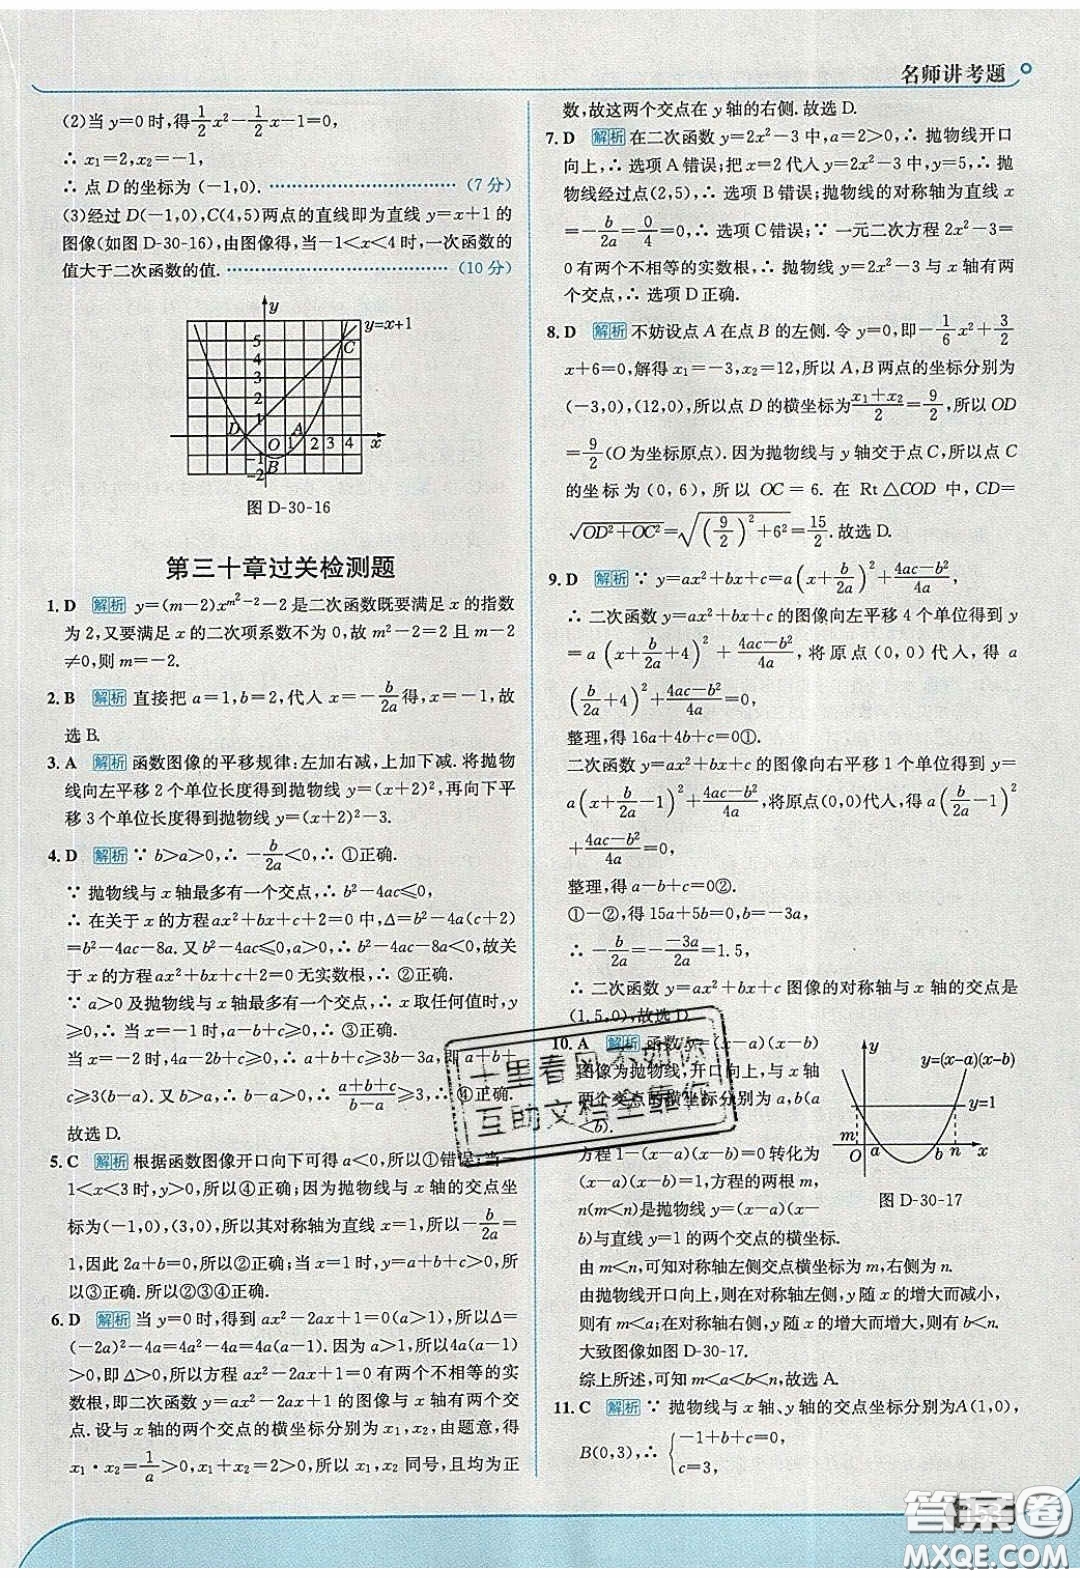 名师讲考题
(2)当 y=0 时,得\frac{1}{2}x²-\frac{1}{2}x-1=0,
∴ x₁=2,x₂=-1,
∴ 点 D 的坐标为 (-1,0). ………………… (7 分)
(3)经过 D(-1,0),C(4,5)两点的直线即为直线 y=x+1 的
图像(如图 D-30-16),由图像得,当-1<x<4 时,一次函数的
值大于二次函数的值. ………………… (10 分)
y
y=x+1
C
5
4
3
2
1
D
A
O
1 2 3 4
x
-1
B
-2
图 D-30-16
第三十章过关检测题
1. D 解析 y=(m-2)x^{m²-2}-2 是二次函数既要满足 x 的指数
为 2,又要满足 x 的二次项系数不为 0,故 m²-2=2 且 m-2
≠0,则 m=-2.
2. B 解析 直接把 a=1,b=2,代入 x=-\frac{b}{2a}得,x=-1,故
选 B.
3. A 解析 函数图像的平移规律:左加右减,上加下减. 将抛物
线向左平移 2 个单位长度得到抛物线 y=(x+2)²,再向下平
移 3 个单位长度得到抛物线 y=(x+2)²-3.
4. D 解析 ∵ b>a>0,∴ -\frac{b}{2a}<0,∴ ①正确.
∵ 抛物线与 x 轴最多有一个交点,∴ b²-4ac≤0,
∴ 在关于 x 的方程 ax²+bx+c+2=0 中,Δ=b²-4a(c+2)
=b²-4ac-8a. 又 b²-4ac≤0,a>0,∴ b²-4ac-8a<0,故关
于 x 的方程 ax²+bx+c+2=0 无实数根,∴ ②正确.
∵ a>0 及抛物线与 x 轴最多有一个交点,∴ x 取任何值时,y
≥0,∴ 当 x=-1 时,a-b+c≥0,∴ ③正确.
当 x=-2 时,4a-2b+c≥0,∴ a+b+c≥3b-3a,即 a+b+
c≥3(b-a). ∵ b>a,∴ b-a>0,∴ \frac{a+b+c}{b-a}≥3,∴ ④正确.
故选 D.
5. C 解析 根据函数图像开口向下可得 a<0,所以①错误;当-
1<x<3 时,y>0,所以④正确;因为抛物线与 x 轴的交点坐
标为(-1,0),(3,0),所以其对称轴为直线 x=1,所以-\frac{b}{2a}=
1,因此 2a+b=0,所以②正确;当 x=1 时,y=a+b+c>0,
所以③正确. 所以②③④正确.
6. D 解析 当 y=0 时,得到 ax²-2ax+1=0(a>1),所以 Δ=
(-2a)²-4a=4a²-4a=4a(a-1). 因为 a>1,所以 4a(a-1)
>0,即 Δ>0,所以方程 ax²-2ax+1=0 有两个不相等的实
数根,即二次函数 y=ax²-2ax+1 的图像与 x 轴有两个交
点. 设与 x 轴的两个交点的横坐标分别为 x₁,x₂,由题意,得
x₁·x₂=\frac{1}{a}>0,x₁+x₂=2>0,所以 x₁,x₂ 同号,且均为正
数,故这两个交点在 y 轴的右侧. 故选 D.
7. D 解析 在二次函数 y=2x²-3 中,a=2>0,∴ 抛物线开口
向上,∴ 选项 A 错误;把 x=2 代入 y=2x²-3 中,y=5,∴ 抛
物线经过点(2,5),∴ 选项 B 错误;抛物线的对称轴为直线 x
=-\frac{b}{2a}=\frac{0}{4}=0,∴ 选项 C 错误;∵ 一元二次方程 2x²-3=
0 有两个不相等的实数根,∴ 抛物线 y=2x²-3 与 x 轴有两
个交点,∴ 选项 D 正确.
8. D 解析 不妨设点 A 在点 B 的左侧. 令 y=0,即-\frac{1}{6}x²+\frac{3}{2}
x+6=0,解得 x₁=-3,x₂=12,所以 A,B 两点的坐标分别为
(-3,0),(12,0),所以点 D 的横坐标为\frac{x₁+x₂}{2}=\frac{9}{2},所以 OD
=\frac{9}{2}(O 为坐标原点). 因为抛物线与 y 轴交于点 C,所以点 C
的坐标为 (0, 6),所以 OC = 6. 在 Rt △COD 中,CD=
\sqrt{OD²+OC²}=\sqrt{(\frac{9}{2})²+6²}=\frac{15}{2}. 故选 D.
9. D 解析 ∵ y=ax²+bx+c=a(x+\frac{b}{2a})²+\frac{4ac-b²}{4a},
∴ 二次函数 y=ax²+bx+c 的图像向左平移 4 个单位得到 y
=a(x+\frac{b}{2a}+4)²+\frac{4ac-b²}{4a},将原点(0,0)代入,得 a
(\frac{b}{2a}+4)²+\frac{4ac-b²}{4a}=0,
整理,得 16a+4b+c=0①.
二次函数 y=ax²+bx+c 的图像向右平移 1 个单位得到 y=
a(x+\frac{b}{2a}-1)²+\frac{4ac-b²}{4a},将原点(0,0)代入,得 a(\frac{b}{2a}-1)²
+\frac{4ac-b²}{4a}=0,
整理,得 a-b+c=0②.
①-②,得 15a+5b=0,b=-3a,
∴ -\frac{b}{2a}=-\frac{-3a}{2a}=1.5,
∴ 二次函数 y=ax²+bx+c 图像的对称轴与 x 轴的交点是
(1.5,0),故选 D.
10. A 解析 函数 y=(x-a)(x-b)
图像为抛物线,开口向上,与 x 轴
两个交点的横坐标分别为 a,b(a
<b).
方程 1-(x-a)(x-b)=0 转化为
(x-a)(x-b)=1,方程的两根 m,
n(m<n)是抛物线 y=(x-a)(x-
b)与直线 y=1 的两个交点的横坐标.
由 m<n,可知对称轴左侧交点横坐标为 m,右侧为 n.
由抛物线开口向上,则在对称轴左侧,y 随 x 的增大而减少,
则有 m<a;在对称轴右侧,y 随 x 的增大而增大,则有 b<n.
大致图像如图 D-30-17.
综上所述,可知 m<a<b<n,故选 A.
y
y=(x-a)(x-b)
y=1
m
O
a
b
n
x
图 D-30-17
11. C 解析 ∵ 抛物线与 x 轴、y 轴的交点坐标分别为A(1,0),
B(0,3),∴ {-1+b+c=0,
c=3,
十里春风不如你
互助文档全靠你
答案圈
MXQE.COM